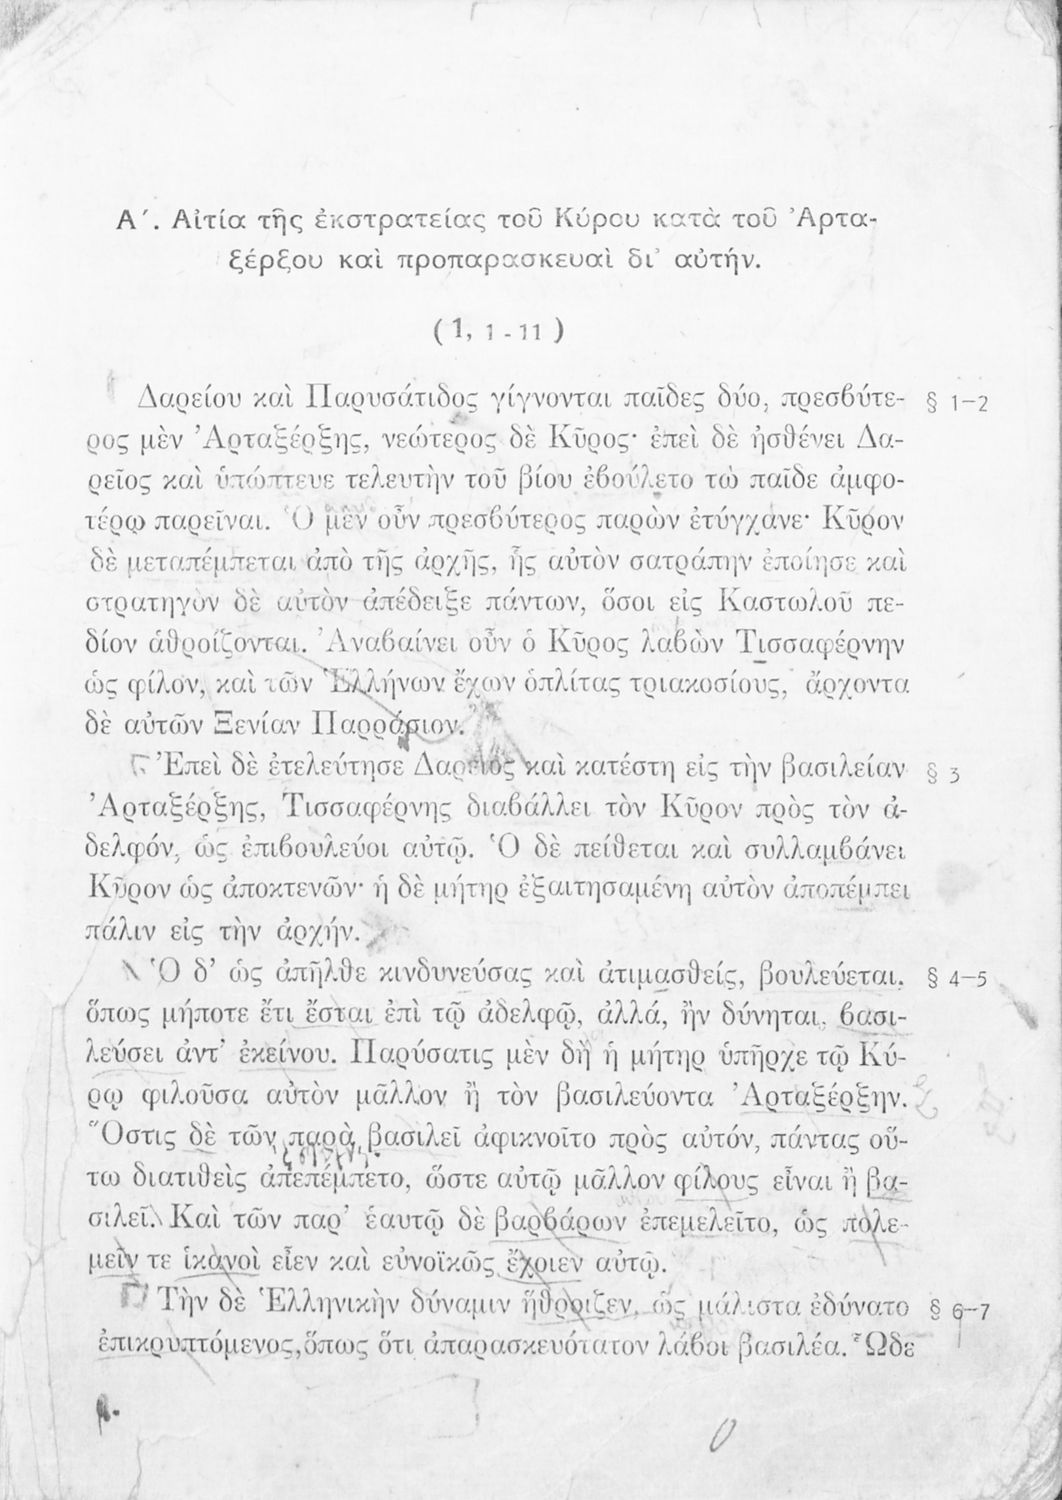 Α΄. Αἰτία τῆς ἐκστρατείας τοῦ Κύρου κατὰ τοῦ Ἀρτα-
ξέρξου καὶ προπαρασκευαὶ δι' αὐτήν.
(1, 1-11)
Δαρείου καὶ Παρυσάτιδος γίγνονται παῖδες δύο, πρεσϐύτε- § 1-2
ρος μὲν Ἀρταξέρξης, νεώτερος δὲ Κῦρος· ἐπεὶ δὲ ἠσθένει Δα-
ρεῖος καὶ ὑπώπτευε τελευτὴν τοῦ βίου ἐϐούλετο τὼ παῖδε ἀμφο-
τέρω παρεῖναι. Ὁ μὲν οὖν πρεσϐύτερος παρὼν ἐτύγχανε· Κῦρον
δὲ μεταπέμπεται ἀπὸ τῆς ἀρχῆς, ἧς αὐτὸν σατράπην ἐποίησε καὶ
στρατηγὸν δὲ αὐτὸν ἀπέδειξε πάντων, ὅσοι εἰς Καστωλοῦ πε-
δίον ἁθροίζονται. Ἀναβαίνει οὖν ὁ Κῦρος λαϐὼν Τισσαφέρνην
ὡς φίλον, καὶ τῶν Ἑλλήνων ἔχων ὁπλίτας τριακοσίους, ἄρχοντα
δὲ αὐτῶν Ξενίαν Παρράσιον.
Ἐπεὶ δὲ ἐτελεύτησε Δαρεῖος καὶ κατέστη εἰς τὴν βασιλείαν § 3
Ἀρταξέρξης, Τισσαφέρνης διαϐάλλει τὸν Κῦρον πρὸς τὸν ἀ-
δελφόν, ὡς ἐπιϐουλεύοι αὐτῷ. Ὁ δὲ πείθεται καὶ συλλαμϐάνει
Κῦρον ὡς ἀποκτενῶν· ἡ δὲ μήτηρ ἐξαιτησαμένη αὐτὸν ἀποπέμπει
πάλιν εἰς τὴν ἀρχήν.
Ὁ δ' ὡς ἀπῆλθε κινδυνεύσας καὶ ἀτιμασθείς, βουλεύεται, § 4-5
ὅπως μήποτε ἔτι ἔσται ἐπὶ τῷ ἀδελφῷ, ἀλλά, ἢν δύνηται, ϐασι-
λεύσει ἀντ' ἐκείνου. Παρύσατις μὲν δὴ ἡ μήτηρ ὑπῆρχε τῷ Κύ-
ρῳ φιλοῦσα αὐτὸν μᾶλλον ἢ τὸν βασιλεύοντα Ἀρταξέρξην.
Ὅστις δὲ τῶν παρὰ βασιλεῖ ἀφικνοῖτο πρὸς αὐτόν, πάντας οὕ-
τω διατιθεὶς ἀπεπέμπετο, ὥστε αὐτῷ μᾶλλον φίλους εἶναι ἢ βα-
σιλεῖ. Καὶ τῶν παρ' ἑαυτῷ δὲ βαρϐάρων ἐπεμελεῖτο, ὡς πολε-
μεῖν τε ἱκανοὶ εἶεν καὶ εὐνοϊκῶς ἔχοιεν αὐτῷ.
Τὴν δὲ Ἑλληνικὴν δύναμιν ἤθροιζεν, ὡς μάλιστα ἐδύνατο § 6-7
ἐπικρυπτόμενος,ὅπως ὅτι ἀπαρασκευότατον λάϐοι βασιλέα. Ὧδε